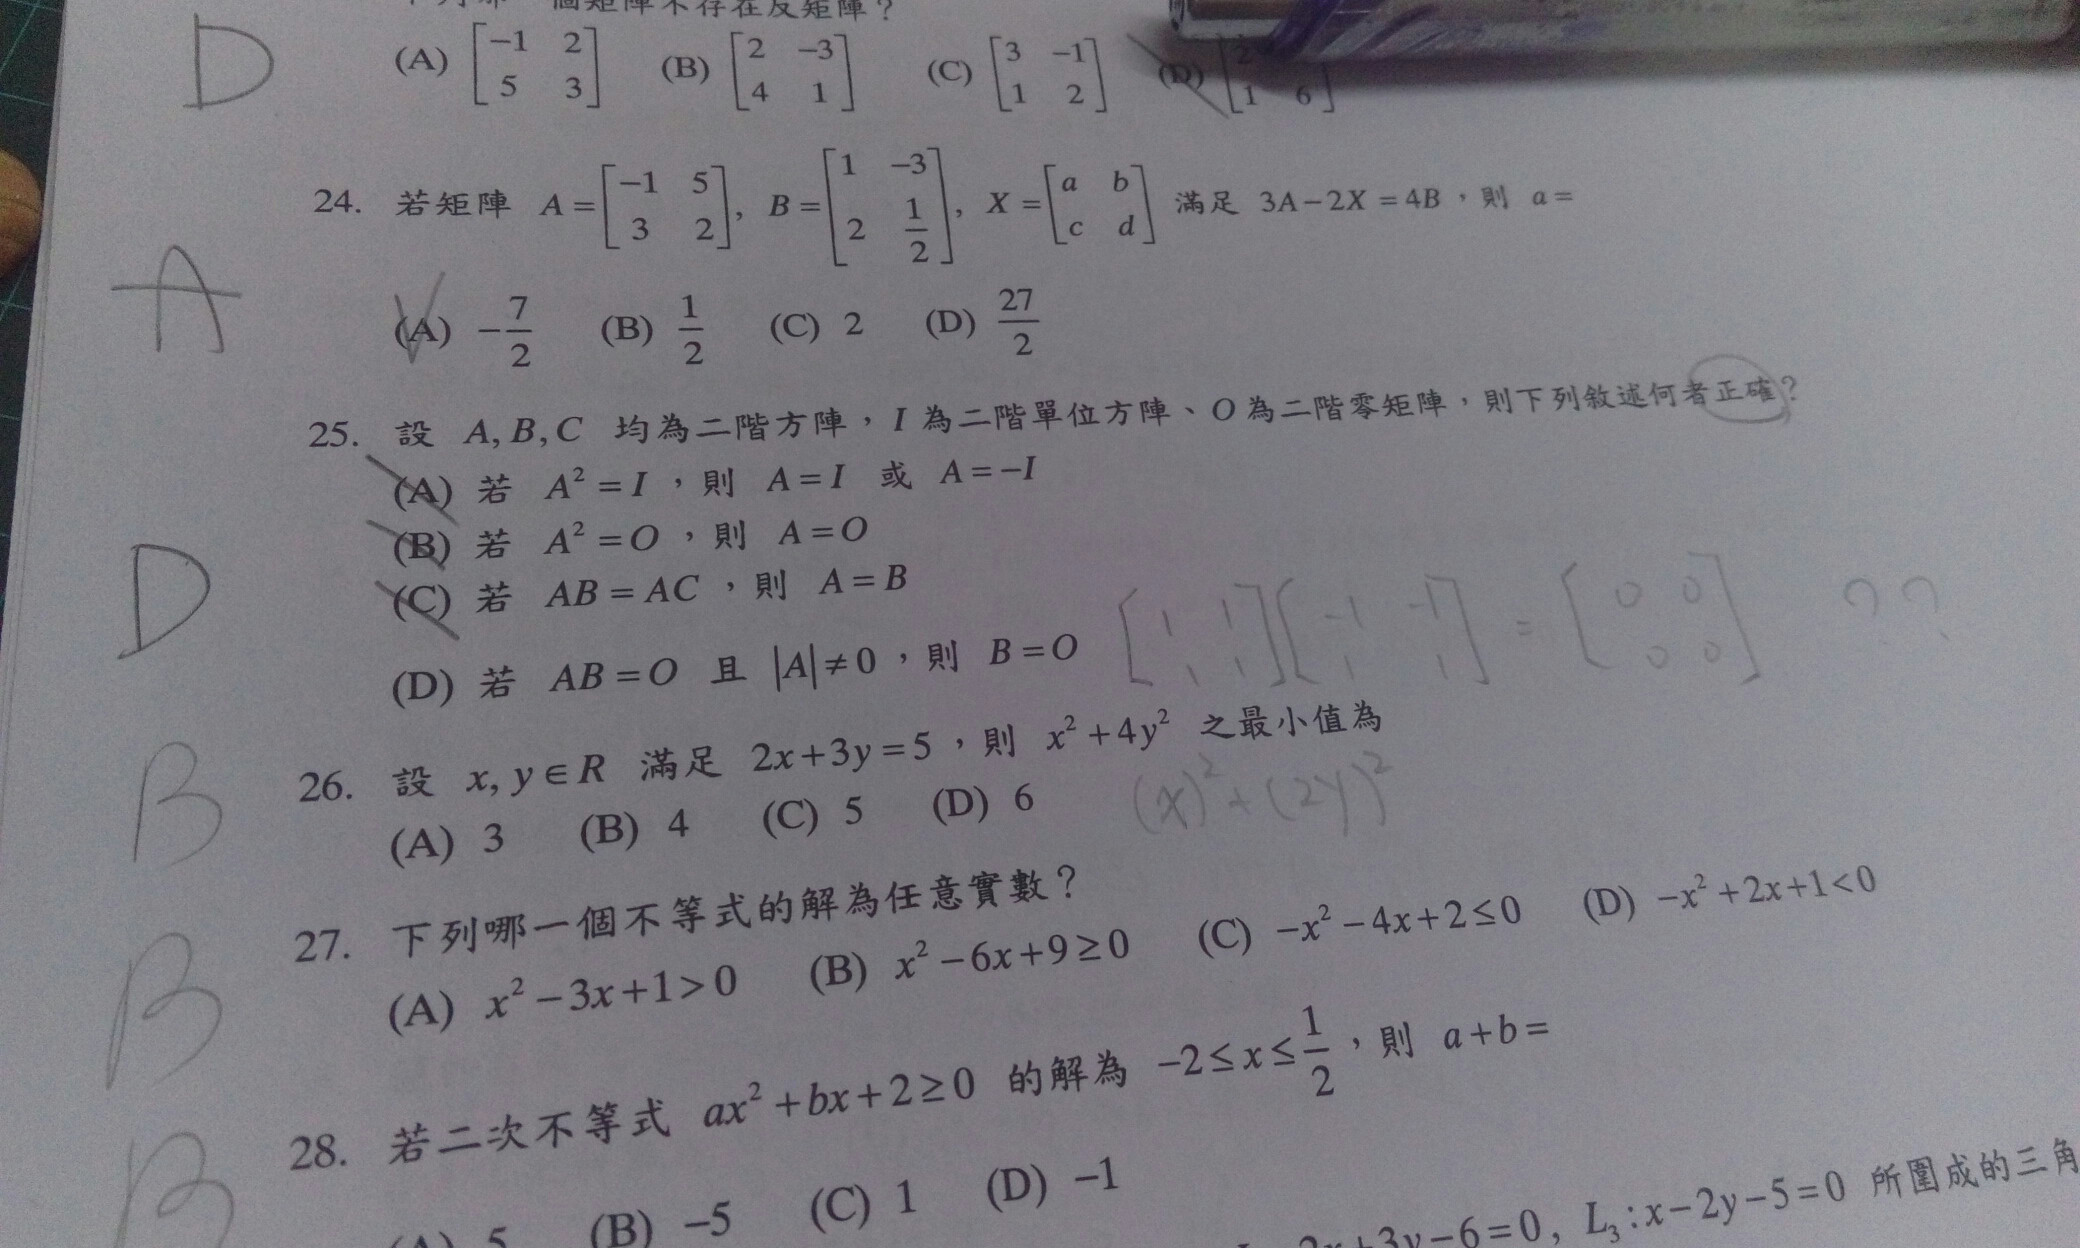 個矩陣不存在反矩陣？
D (A) [-1 2; 5 3] (B) [2 -3; 4 1] (C) [3 -1; 1 2] (D) [2; 1 6]
24. 若矩陣 A=[-1 5; 3 2], B=[1 -3; 2 1/2], X=[a b; c d] 滿足 3A-2X=4B，則 a=
A (A) -7/2 (B) 1/2 (C) 2 (D) 27/2
25. 設 A, B, C 均為二階方陣，I 為二階單位方陣、O 為二階零矩陣，則下列敘述何者正確？
(A) 若 A²=I，則 A=I 或 A=-I
(B) 若 A²=O，則 A=O
D (C) 若 AB=AC，則 A=B
(D) 若 AB=O 且 |A|≠0，則 B=O [1 1; 1 1][-1 -1; 1 1]=[0 0; 0 0] ??
26. 設 x, y∈R 滿足 2x+3y=5，則 x²+4y² 之最小值為
B (A) 3 (B) 4 (C) 5 (D) 6 (x)²+(2y)²
27. 下列哪一個不等式的解為任意實數？
B (A) x²-3x+1>0 (B) x²-6x+9≥0 (C) -x²-4x+2≤0 (D) -x²+2x+1<0
28. 若二次不等式 ax²+bx+2≥0 的解為 -2≤x≤1/2，則 a+b=
B (A) 5 (B) -5 (C) 1 (D) -1
+3y-6=0, L₃:x-2y-5=0 所圍成的三角